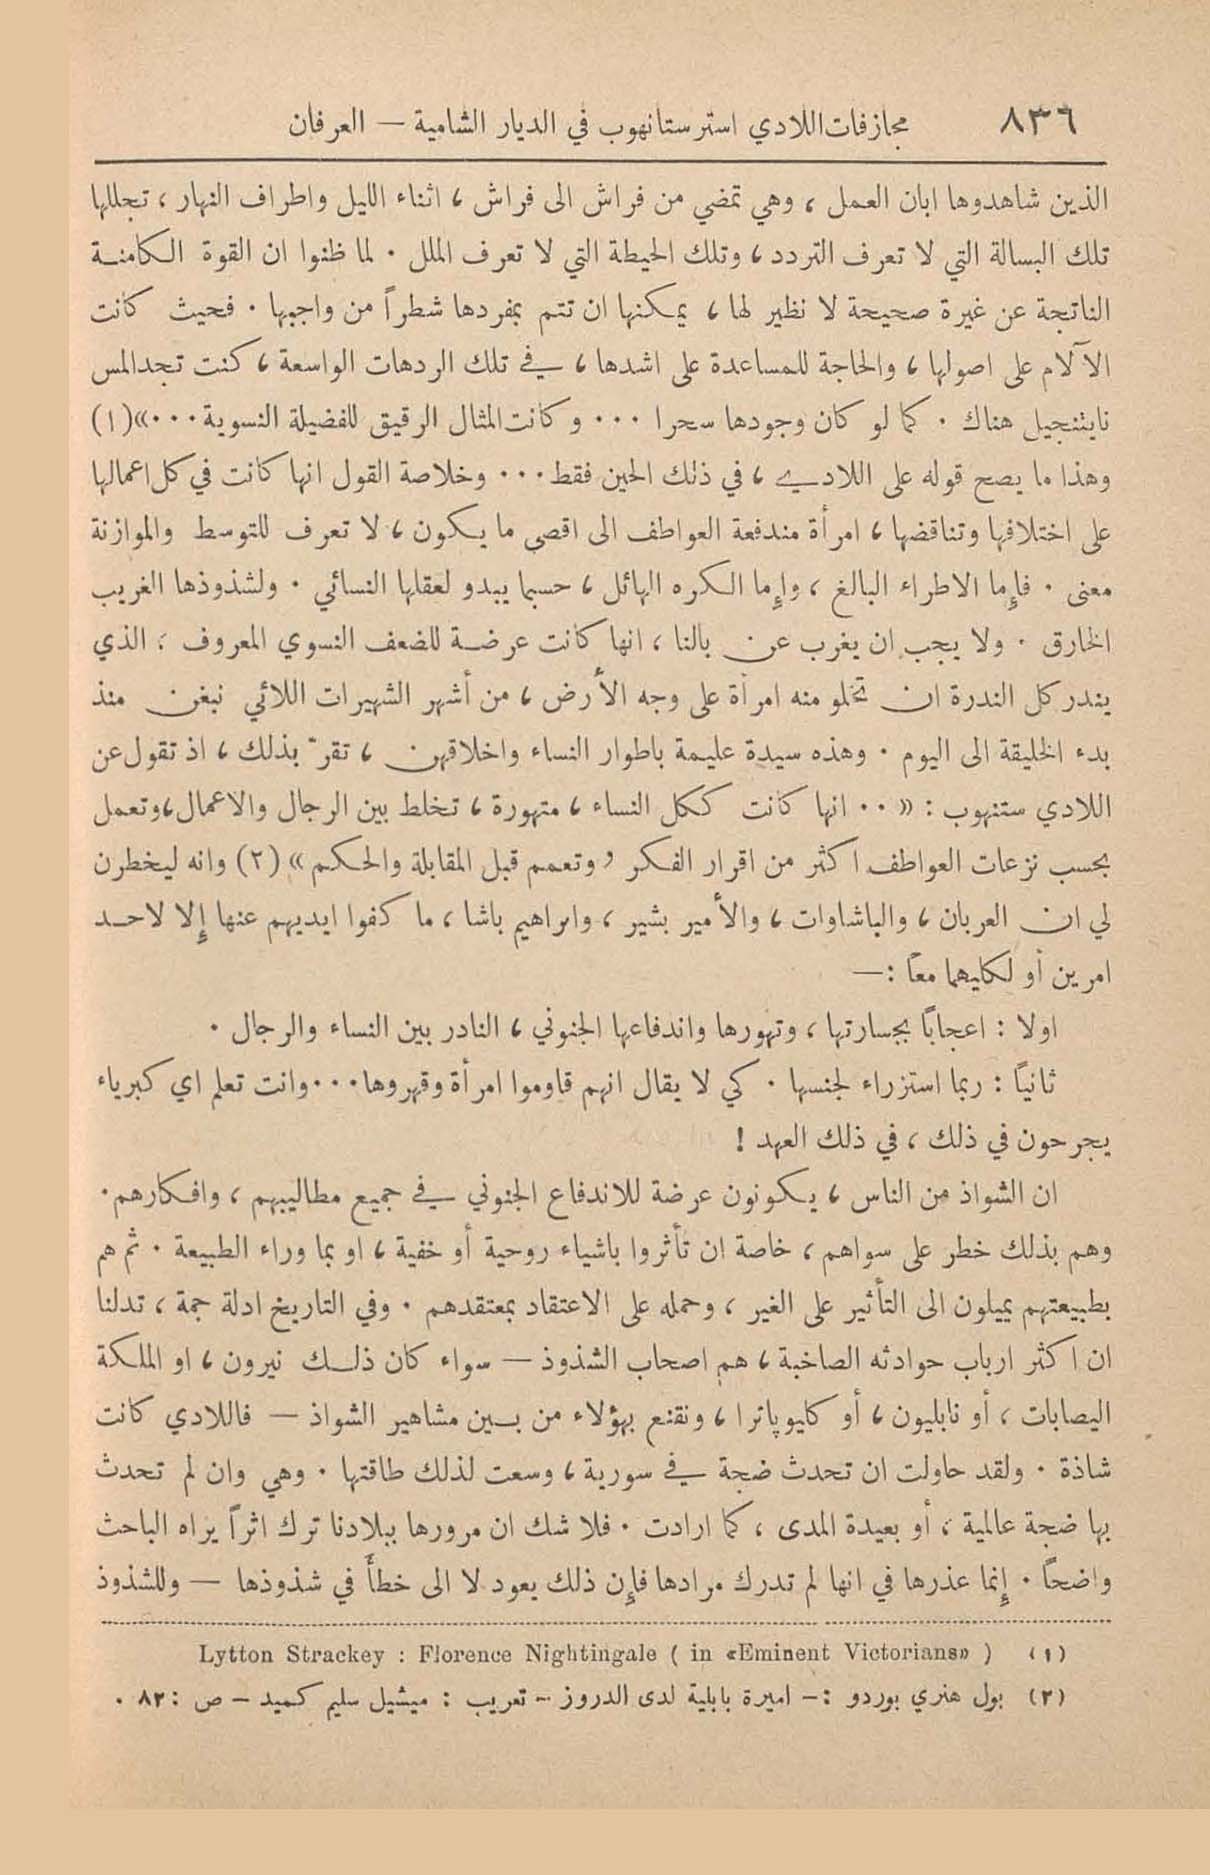 ٨٣٦ مجازفات اللادي استرستانهوب في الديار الشامية — العرفان
الذين شاهدوها ابان العمل ، وهي تمضي من فراش الى فراش ، اثناء الليل واطراف النهار ، تجللها
تلك البسالة التي لا تعرف التردد ، وتلك الحيطة التي لا تعرف الملل . لما ظنوا ان القوة الكامنة
الناتجة عن غيرة صحيحة لا نظير لها ، يمكنها ان تتم بمفردها شطراً من واجبها . فحيث كانت
الآلام على اصولها ، والحاجة للمساعدة على اشدها ، في تلك الردهات الواسعة ، كنت تجد المس
نايتنجيل هناك . كما لو كان وجودها سحرا ... وكانت المثال الرقيق للفضيلة النسوية...»(١)
وهذا ما يصح قوله على اللادي ، في ذلك الحين فقط... وخلاصة القول انها كانت في كل اعمالها
على اختلافها وتناقضها ، امرأة مندفعة العواطف الى اقصى ما يكون ، لا تعرف للتوسط والموازنة
معنى . فإما الاطراء البالغ ، وإما الكره الهائل ، حسبما يبدو لعقلها النسائي . ولشذوذها الغريب
الخارق . ولا يجب ان يغرب عن بالنا ، انها كانت عرضة للضعف النسوي المعروف ، الذي
يندر كل الندرة ان تخلو منه امرأة على وجه الأرض ، من أشهر الشهيرات اللائي نبغن منذ
بدء الخليقة الى اليوم . وهذه سيدة عليمة باطوار النساء واخلاقهن ، تقرّ بذلك ، اذ تقول عن
اللادي ستنهوب : «.. انها كانت ككل النساء ، متهورة ، تخلط بين الرجال والاعمال ، وتعمل
بحسب نزعات العواطف اكثر من اقرار الفكر ، وتعمم قبل المقابلة والحكم » (٢) وانه ليخطرن
لي ان العربان ، والباشاوات ، والأمير بشير ، وابراهيم باشا ، ما كفوا ايديهم عنها إلا لاحد
امرين أو لكليهما معاً :—
اولا : اعجاباً بجسارتها ، وتهورها واندفاعها الجنوني ، النادر بين النساء والرجال .
ثانياً : ربما استزراء لجنسها . كي لا يقال انهم قاوموا امرأة وقهروها... وانت تعلم اي كبرياء
يجرحون في ذلك ، في ذلك العهد !
ان الشواذ من الناس ، يكونون عرضة للاندفاع الجنوني في جميع مطاليبهم ، وافكارهم .
وهم بذلك خطر على سواهم ، خاصة ان تأثروا باشياء روحية أو خفية ، او بما وراء الطبيعة . ثم هم
بطبيعتهم يميلون الى التأثير على الغير ، وحمله على الاعتقاد بمعتقدهم . وفي التاريخ ادلة جمة ، تدلنا
ان اكثر ارباب حوادثه الصاخبة ، هم اصحاب الشذوذ — سواء كان ذلك نيرون ، او الملكة
اليصابات ، أو نابليون ، أو كليوپاترا ، ونقنع بهؤلاء من بين مشاهير الشواذ — فاللادي كانت
شاذة . ولقد حاولت ان تحدث ضجة في سورية ، وسعت لذلك طاقتها . وهي وان لم تحدث
بها ضجة عالمية ، أو بعيدة المدى ، كما ارادت . فلا شك ان مرورها ببلادنا ترك اثراً يراه الباحث
واضحاً . إنما عذرها في انها لم تدرك مرادها فإن ذلك يعود لا الى خطأ في شذوذها — وللشذوذ
(١) Lytton Strackey : Florence Nightingale ( in «Eminent Victorians» )
(٢) بول هنري بوردو :- اميرة بابلية لدى الدروز - تعريب : ميشيل سليم كميد - ص : ٨٢ .